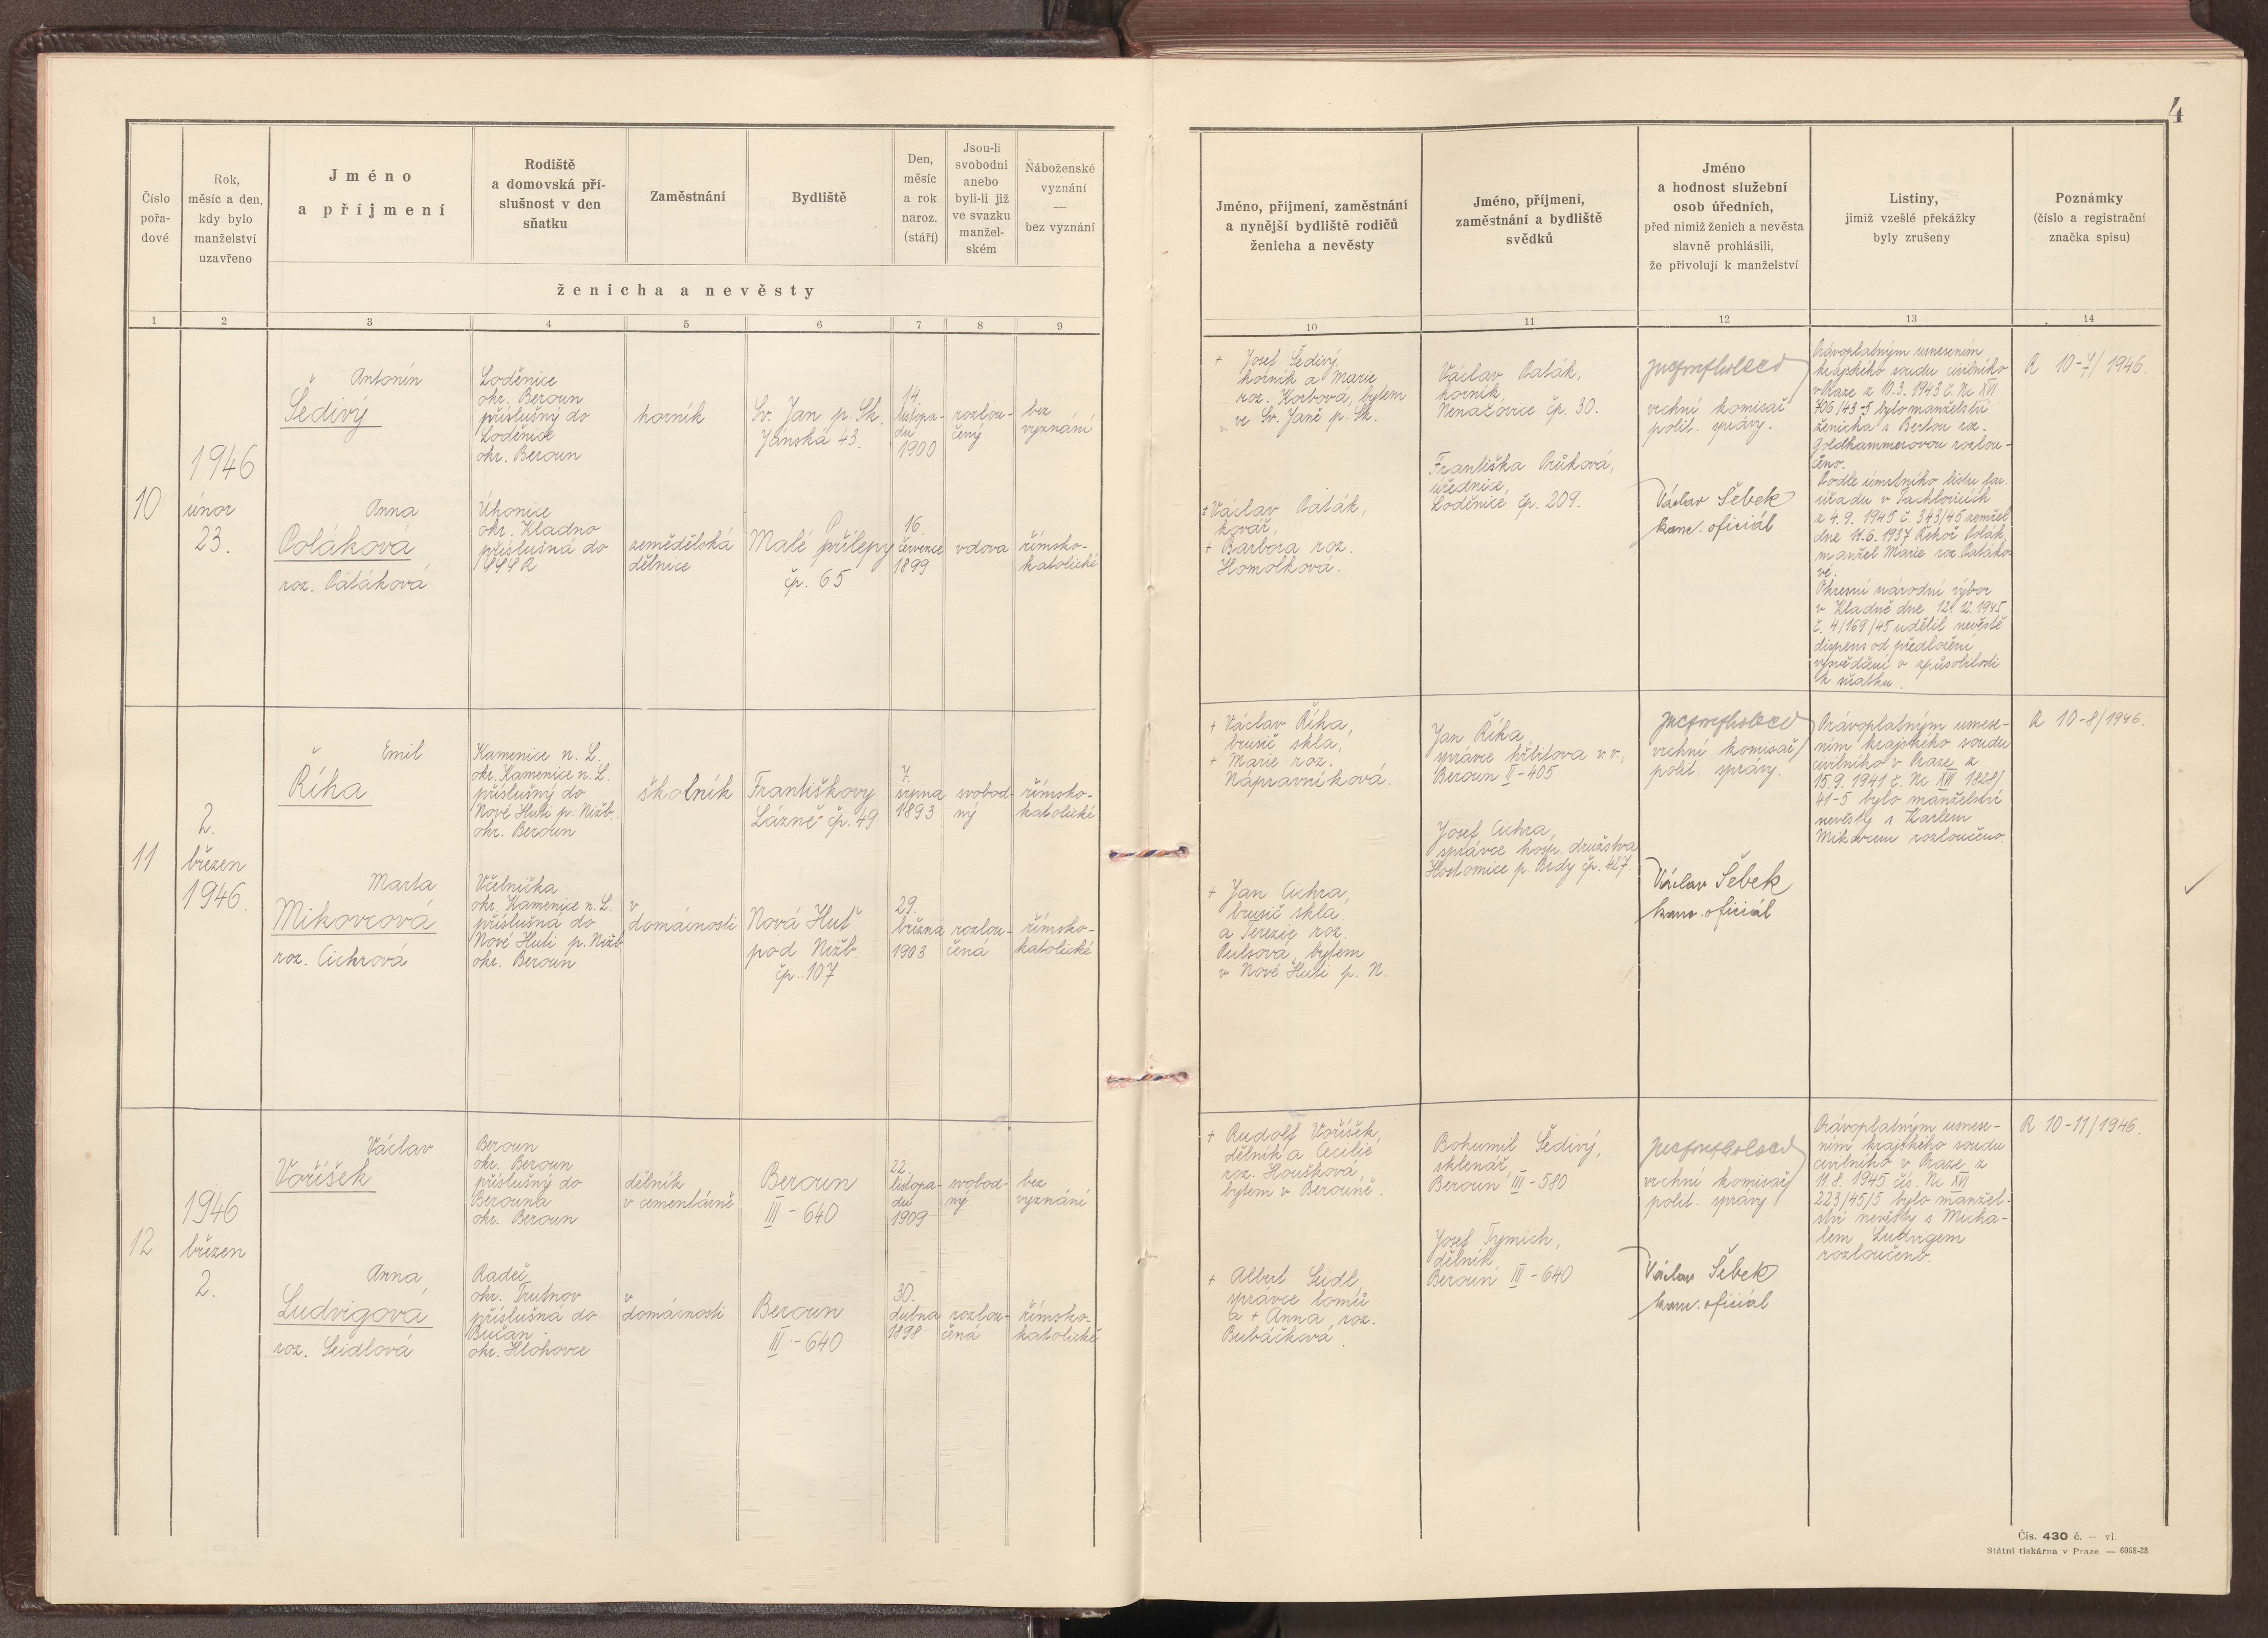 4
Číslo
pořa-
dové
Rok,
měsíc a den,
kdy bylo
manželství
uzavřeno
Jméno
a příjmení
Rodiště
a domovská pří-
slušnost v den
sňatku
Zaměstnání
Bydliště
Den,
měsíc
a rok
naroz.
(stáří)
Jsou-li
svobodni
anebo
byli-li již
ve svazku
manžel-
ském
Náboženské
vyznání
—
bez vyznání
ženicha a nevěsty
Jméno, příjmení, zaměstnání
a nynější bydliště rodičů
ženicha a nevěsty
Jméno, příjmení,
zaměstnání a bydliště
svědků
Jméno
a hodnost služební
osob úředních,
před nimiž ženich a nevěsta
slavně prohlásili,
že přivolují k manželství
Listiny,
jimiž vzešlé překážky
byly zrušeny
Poznámky
(číslo a registrační
značka spisu)
1 2 3 4 5 6 7 8 9 10 11 12 13 14
10
1946
únor
23.
Antonín
Šedivý
Loděnice
okr. Beroun
příslušný do
Loděnice
okr. Beroun
horník
Sv. Jan p. Sk.
Janská 43.
14.
listopa-
du
1900
rozlou-
čený
bez
vyznání
Anna
Poláková
roz. Patáková
Úhonice
okr. Kladno
příslušná do
SSSR
zemědělská
dělnice
Malé Přílepy
čp. 65
16.
července
1899
vdova
římsko-
katolické
+ Josef Šedivý
horník a Marie
roz. Korbová, bytem
ve Sv. Janě p. Sk.
+ Václav Paták,
kovář,
+ Barbora roz.
Homolková.
Václav Paták,
horník,
Nenačovice čp. 30.
Františka Průková,
úřednice,
Loděnice čp. 209.
vrchní komisař
polit. správy.
Václav Šebek
kanc. oficiál
Právoplatným usnesením
krajského soudu civilního
v Praze z 10.3. 1943 č. Nc XVII
706/43-5 bylo manželství
ženicha s Bertou roz.
Goldhammerovou rozlou-
čeno.
Podle úmrtního listu far.
úřadu v
z 4.9. 1945 č. 343/45 zemřel
dne 11.6. 1937 Řehoř Polák,
manžel Marie roz. Patáko-
vé.
Okresní národní výbor
v Kladně dne 12.12.1945
č. 4/169/45 udělil nevěstě
dispens od předložení
vysvědčení o způsobilosti
k sňatku.
R 10-7/1946.
11
2.
březen
1946.
Emil
Říha
Kamenice n. L.
okr. Kamenice n. L.
příslušný do
Nové Huti p. Nižb.
okr. Beroun
školník
Františkovy
Lázně čp. 49
7.
srpna
1893
svobod-
ný
římsko-
katolické
Marta
Mikovcová
roz. Cichrová
Včelnička
okr. Kamenice n. L.
příslušná do
Nové Huti p. Nižb.
okr. Beroun
v
domácnosti
Nová Huť
pod Nižb.
čp. 107
29.
března
1903
rozlou-
čená
římsko-
katolické
+ Václav Říha,
brusič skla,
+ Marie roz.
Nápravníková.
+ Jan Cichra,
brusič skla,
a Terezie roz.
Pulsová, bytem
v Nové Huti p. N.
Jan Říha
správce hřbitova v v.,
Beroun II-405
Josef Cichra,
správce hosp. družstva
Hostomice p. Brdy čp. 427.
vrchní komisař
polit. správy.
Václav Šebek
kanc. oficiál
Právoplatným usnese-
ním krajského soudu
civilního v Praze z
15.9. 1941 č. Nc XVII 1828/
41-5 bylo manželství
nevěsty s Karlem
Mikovcem rozloučeno.
R 10-8/1946.
12
1946
březen
2.
Václav
Voříšek
Beroun
okr. Beroun
příslušný do
Berouna
okr. Beroun
dělník
v cementárně
Beroun
III - 640
22.
listopa-
du
1909
svobod-
ný
bez
vyznání
Anna
Ludvigová
roz. Seidlová
Radeč
okr. Trutnov
příslušná do
Bučan
okr. Hlohovce
v
domácnosti
Beroun
III - 640
30.
dubna
1898
rozlou-
čená
římsko-
katolické
+ Rudolf Voříšek,
dělník a Cecilie
roz. Houšková,
bytem v Berouně.
+ Albert Seidl,
správce lomů
a + Anna roz.
Bubáčková.
Bohumil Šedivý,
sklenář,
Beroun III-580
Josef Tymich,
dělník,
Beroun III-640
vrchní komisař
polit. správy
Václav Šebek
kanc. oficiál
Právoplatným usnese-
ním krajského soudu
civilního v Praze z
11.8. 1945 čís. Nc XVII
223/45/5 bylo manžel-
ství nevěsty s Micha-
lem Ludvigem
rozloučeno.
R 10-11/1946.
Čís. 430 č. — vl.
Státní tiskárna v Praze. — 6068-38.